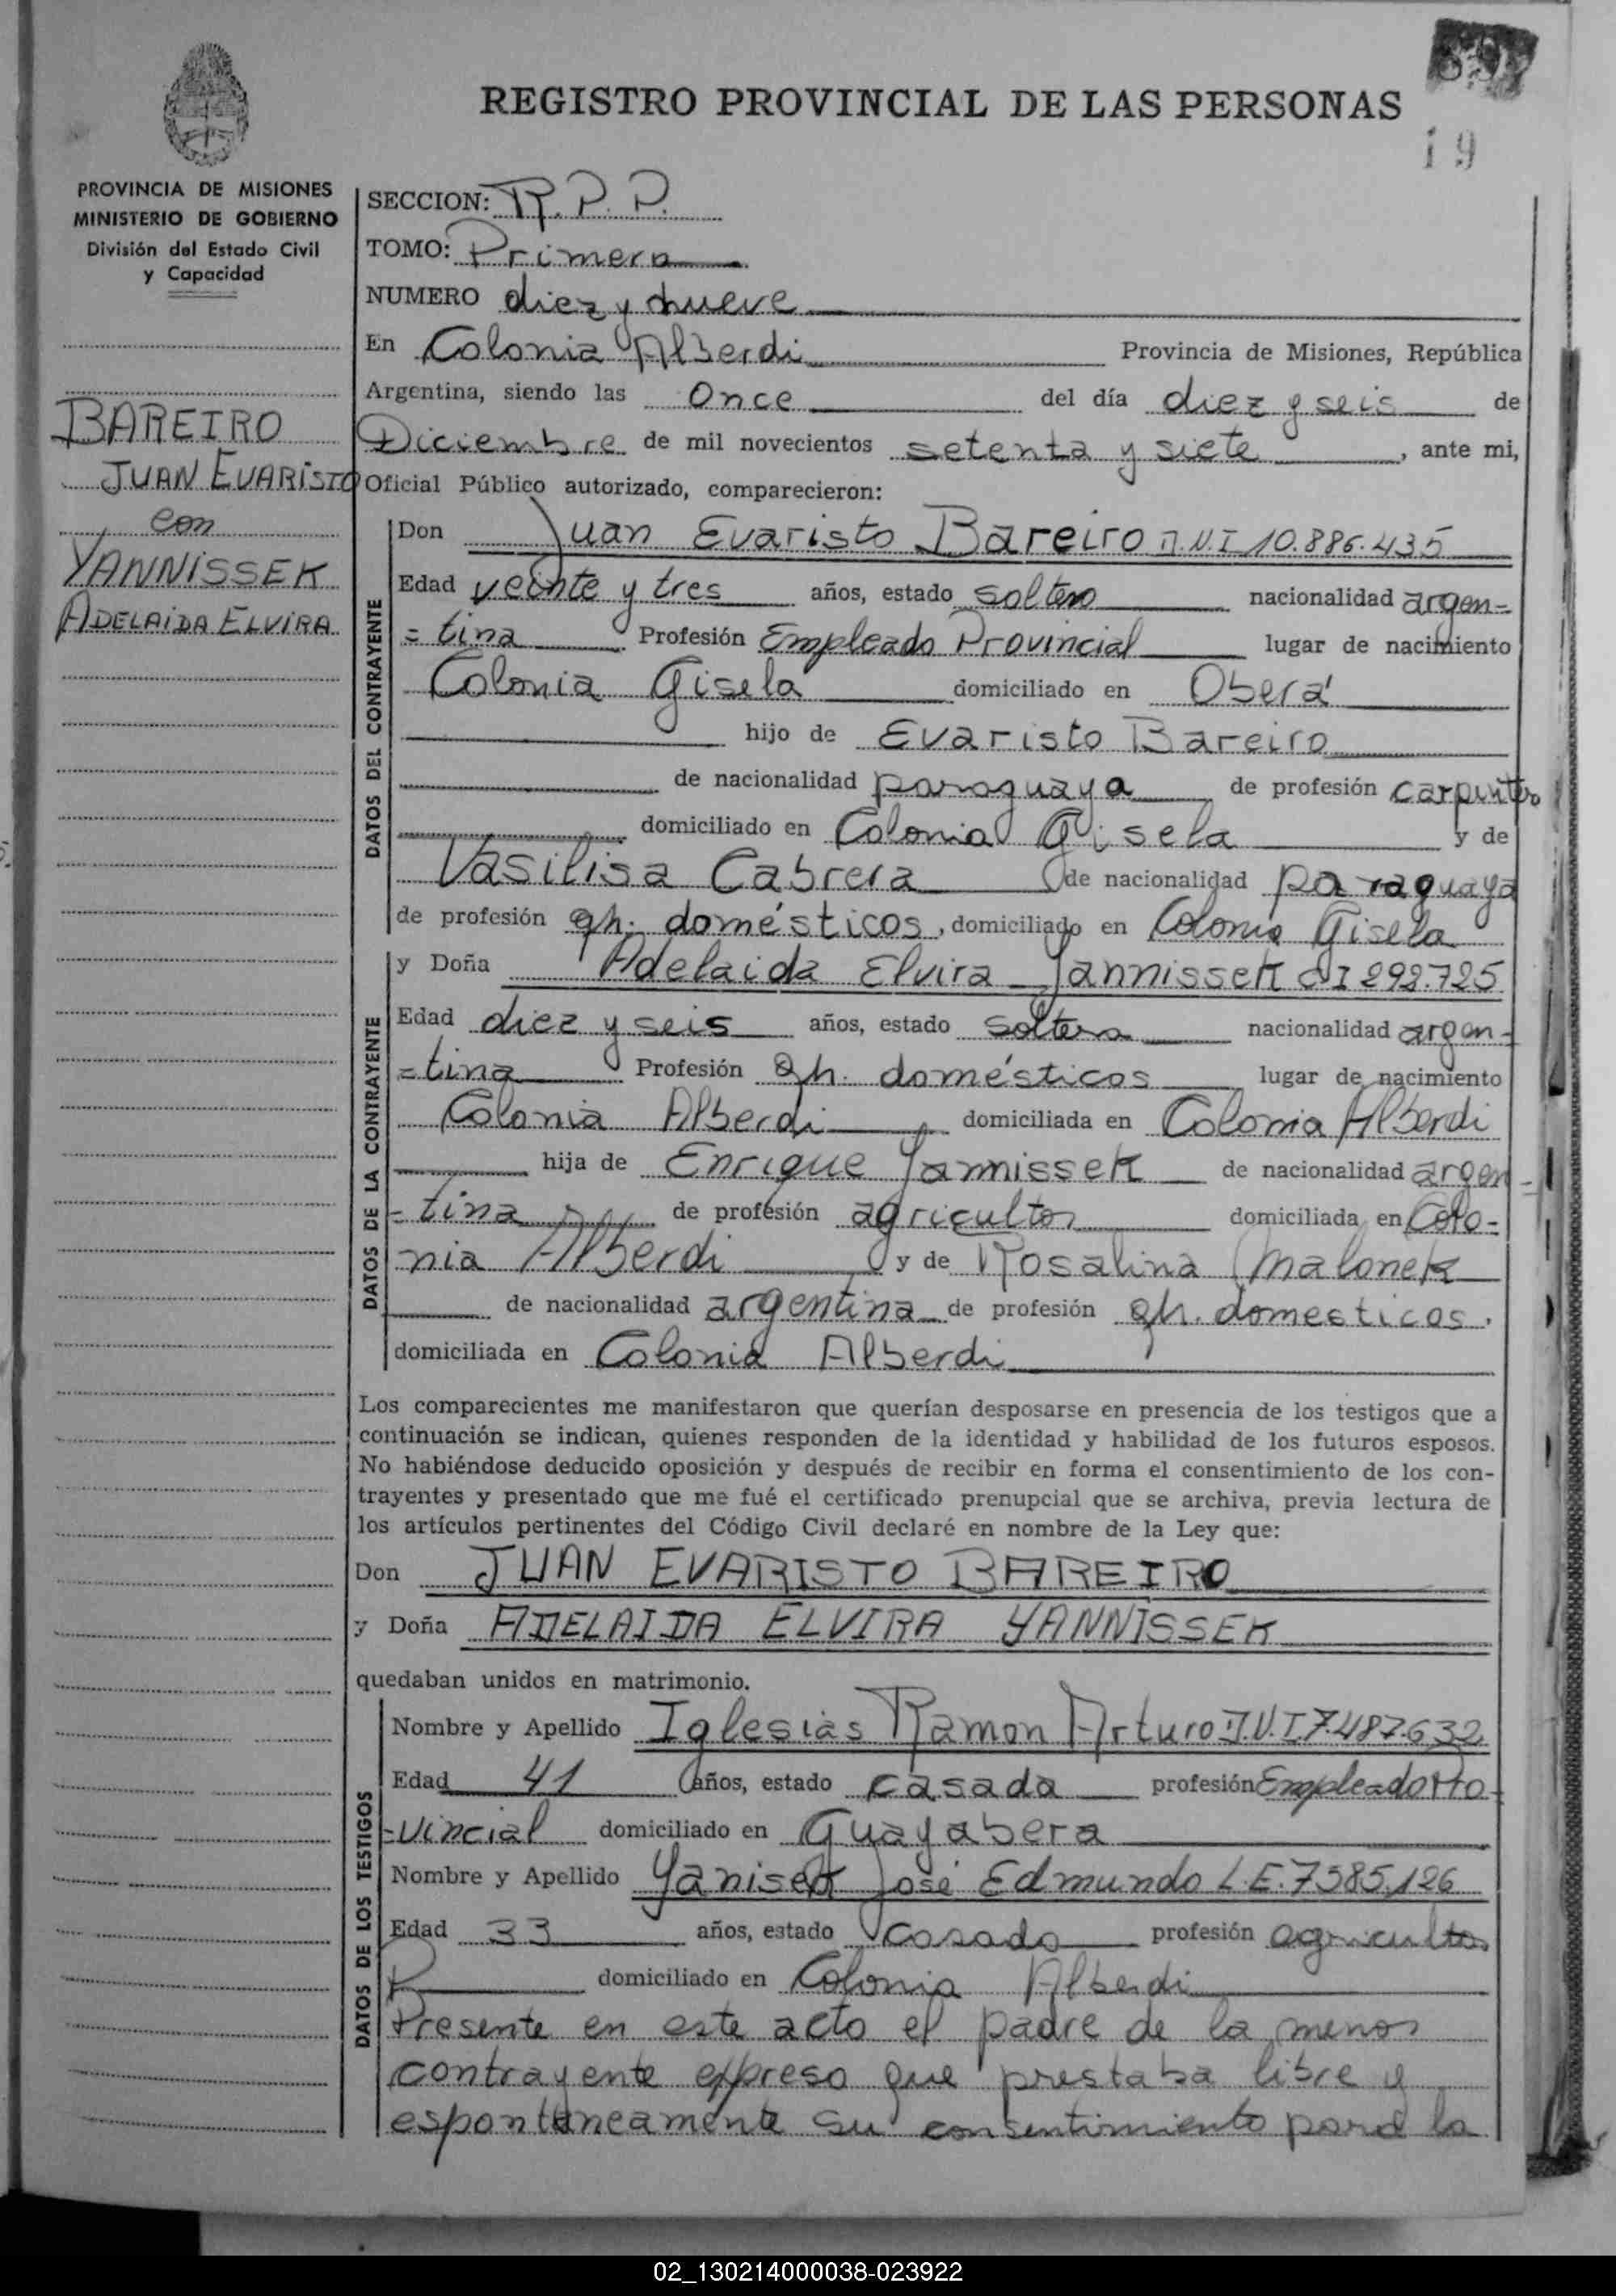 REGISTRO PROVINCIAL DE LAS PERSONAS
19
PROVINCIA DE MISIONES
MINISTERIO DE GOBIERNO
División del Estado Civil
y Capacidad
BAREIRO
JUAN EVARISTO
con
YANNISSEK
ADELAIDA ELVIRA
SECCION: R.P.P.
TOMO: Primero
NUMERO diez y nueve
En Colonia Alberdi Provincia de Misiones, República
Argentina, siendo las Once del día diez y seis de
Diciembre de mil novecientos setenta y siete, ante mi,
Oficial Público autorizado, comparecieron:
DATOS DEL CONTRAYENTE
Don Juan Evaristo Bareiro D.N.I 10.886.435
Edad veinte y tres años, estado soltero nacionalidad argen=
=tina Profesión Empleado Provincial lugar de nacimiento
Colonia Gisela domiciliado en Oberá
hijo de Evaristo Bareiro
de nacionalidad paraguaya de profesión carpintero
domiciliado en Colonia Gisela y de
Vasilisa Cabrera de nacionalidad paraguaya
de profesión qh. domésticos, domiciliado en Colonia Gisela
DATOS DE LA CONTRAYENTE
y Doña Adelaida Elvira Yannissek CI 292.725
Edad diez y seis años, estado soltera nacionalidad argen=
=tina Profesión Qh. domésticos lugar de nacimiento
Colonia Alberdi domiciliada en Colonia Alberdi
hija de Enrique Yannissek de nacionalidad argen=
=tina de profesión agricultor domiciliada en Colo=
nia Alberdi y de Rosalina Malonek
de nacionalidad argentina de profesión qh. domesticos,
domiciliada en Colonia Alberdi
Los comparecientes me manifestaron que querían desposarse en presencia de los testigos que a
continuación se indican, quienes responden de la identidad y habilidad de los futuros esposos.
No habiéndose deducido oposición y después de recibir en forma el consentimiento de los con-
trayentes y presentado que me fué el certificado prenupcial que se archiva, previa lectura de
los artículos pertinentes del Código Civil declaré en nombre de la Ley que:
Don JUAN EVARISTO BAREIRO
y Doña ADELAIDA ELVIRA YANNISSEK
quedaban unidos en matrimonio.
DATOS DE LOS TESTIGOS
Nombre y Apellido Iglesias Ramon Arturo D.N.I 7.487.632
Edad 41 años, estado casada profesión Empleado Pro=
=vincial domiciliado en Guayabera
Nombre y Apellido Yanisek José Edmundo L.E. 7585.126
Edad 33 años, estado casado profesión agricultor
domiciliado en Colonia Alberdi
Presente en este acto el padre de la menor
contrayente expreso que prestaba libre y
espontaneamente su consentimiento para la
02_130214000038-023922